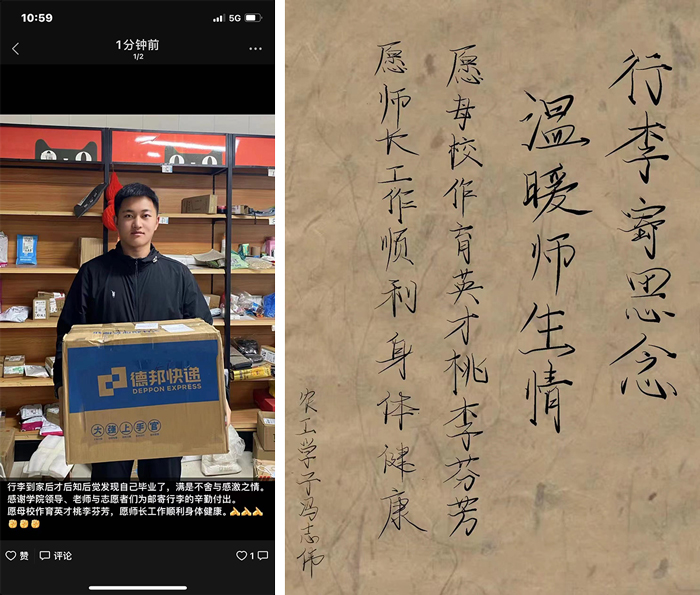 10:59
5G
1分钟前
1/2
德邦快递
DEPPON EXPRESS
大强上手官
行李到家后才后知后觉发现自己毕业了，满是不舍与感激之情。
感谢学院领导、老师与志愿者们为邮寄行李的辛勤付出。
愿母校作育英才桃李芬芳，愿师长工作顺利身体健康。✍✍✍
✊✊✊
赞
评论
1
行李寄思念
温暖师生情
愿母校作育英才桃李芬芳
愿师长工作顺利身体健康
农工学子冯志伟